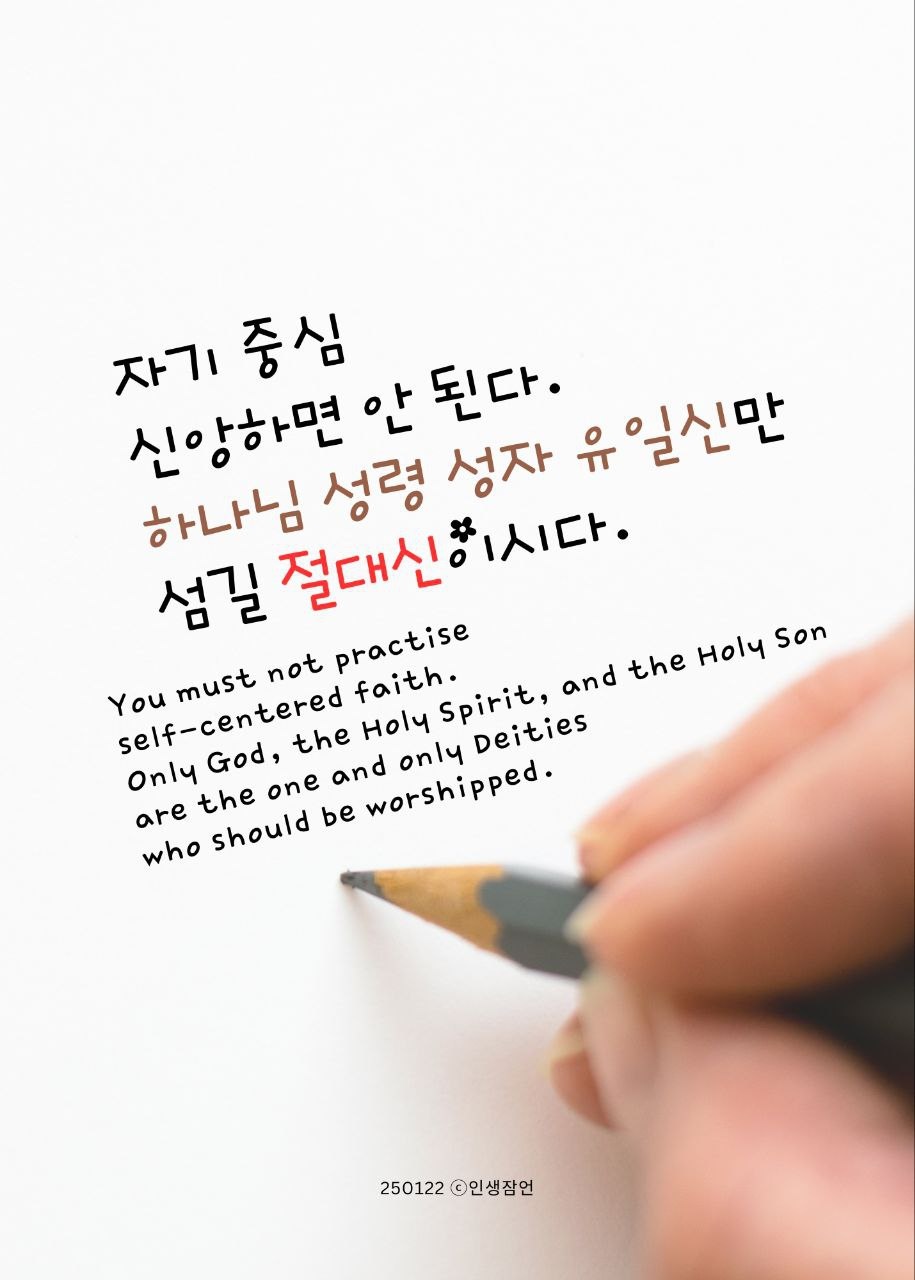 자기 중심
신앙하면 안 된다.
하나님 성령 성자 유일신만
섬길 절대신이시다.
You must not practise
self-centered faith.
Only God, the Holy Spirit, and the Holy Son
are the one and only Deities
who should be worshipped.
250122 ⓒ인생잠언